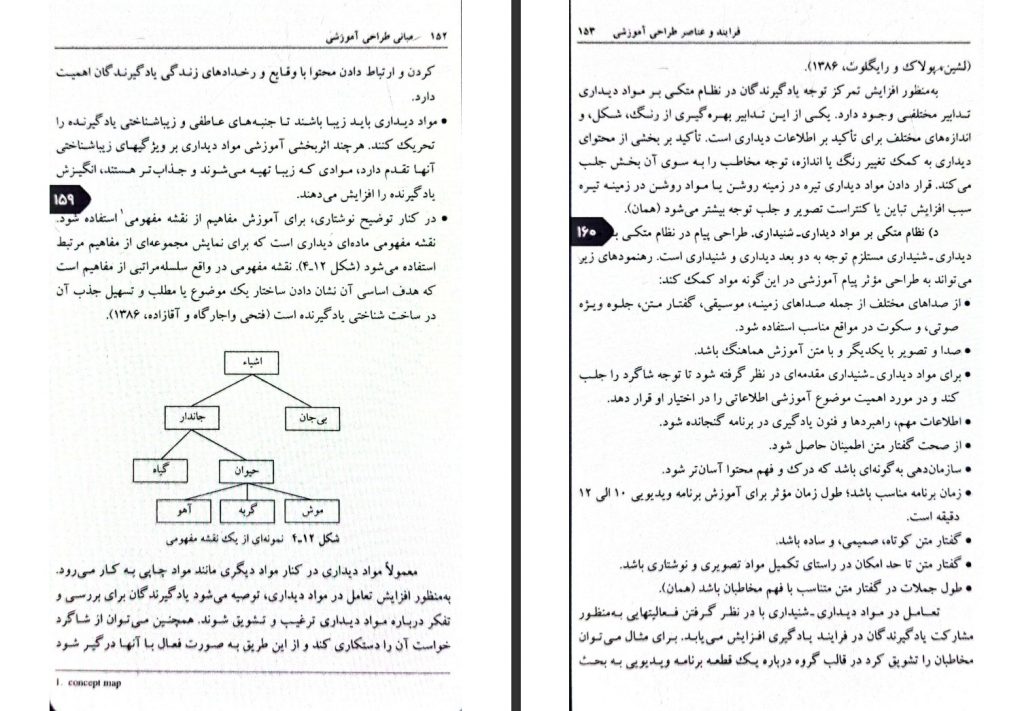 ۱۵۲ مبانی طراحی آموزشی
کردن و ارتباط دادن محتوا با وقایع و رخدادهای زندگی یادگیرندگان اهمیت
دارد.
• مواد دیداری باید زیبا باشند تا جنبه‌های عاطفی و زیباشناختی یادگیرنده را
تحریک کنند. هرچند اثربخشی آموزشی مواد دیداری بر ویژگیهای زیباشناختی
آنها تقدم دارد، موادی که زیبا تهیه می‌شوند و جذاب‌تر هستند، انگیزش
یادگیرنده را افزایش می‌دهند.
۱۵۹
• در کنار توضیح نوشتاری، برای آموزش مفاهیم از نقشه مفهومی۱ استفاده شود.
نقشه مفهومی ماده‌ای دیداری است که برای نمایش مجموعه‌ای از مفاهیم مرتبط
استفاده می‌شود (شکل ۱۲ـ۴). نقشه مفهومی در واقع سلسله‌مراتبی از مفاهیم است
که هدف اساسی آن نشان دادن ساختار یک موضوع یا مطلب و تسهیل جذب آن
در ساخت شناختی یادگیرنده است (فتحی واجارگاه و آقازاده، ۱۳۸۶).
اشیاء
جاندار
بی‌جان
گیاه
حیوان
آهو
گربه
موش
شکل ۱۲ـ۴ نمونه‌ای از یک نقشه مفهومی
معمولاً مواد دیداری در کنار مواد دیگری مانند مواد چاپی به کار می‌رود.
به‌منظور افزایش تعامل در مواد دیداری، توصیه می‌شود یادگیرندگان برای بررسی و
تفکر درباره مواد دیداری ترغیب و تشویق شوند. همچنین می‌توان از شاگرد
خواست آن را دستکاری کند و از این طریق به صورت فعال با آنها درگیر شود
1. concept map
فرایند و عناصر طراحی آموزشی ۱۵۳
(لشین، پولاک و رایگلوث، ۱۳۸۶).
به‌منظور افزایش تمرکز توجه یادگیرندگان در نظام متکی بر مواد دیداری
تدابیر مختلفی وجود دارد. یکی از این تدابیر بهره‌گیری از رنگ، شکل، و
اندازه‌های مختلف برای تأکید بر اطلاعات دیداری است. تأکید بر بخشی از محتوای
دیداری به کمک تغییر رنگ یا اندازه، توجه مخاطب را به سوی آن بخش جلب
می‌کند. قرار دادن مواد دیداری تیره در زمینه روشن یا مواد روشن در زمینه تیره
سبب افزایش تباین یا کنتراست تصویر و جلب توجه بیشتر می‌شود (همان).
۱۶۰
د) نظام متکی بر مواد دیداری‌ـ شنیداری. طراحی پیام در نظام متکی به
دیداری‌ـ شنیداری مستلزم توجه به دو بعد دیداری و شنیداری است. رهنمودهای زیر
می‌تواند به طراحی مؤثر پیام آموزشی در این‌گونه مواد کمک کند:
• از صداهای مختلف از جمله صداهای زمینه، موسیقی، گفتار متن، جلوه ویژه
صوتی، و سکوت در مواقع مناسب استفاده شود.
• صدا و تصویر با یکدیگر و با متن آموزش هماهنگ باشد.
• برای مواد دیداری‌ـ شنیداری مقدمه‌ای در نظر گرفته شود تا توجه شاگرد را جلب
کند و در مورد اهمیت موضوع آموزشی اطلاعاتی را در اختیار او قرار دهد.
• اطلاعات مهم، راهبردها و فنون یادگیری در برنامه گنجانده شود.
• از صحت گفتار متن اطمینان حاصل شود.
• سازمان‌دهی به‌گونه‌ای باشد که درک و فهم محتوا آسان‌تر شود.
• زمان برنامه مناسب باشد؛ طول زمان مؤثر برای آموزش برنامه ویدیویی ۱۰ الی ۱۲
دقیقه است.
• گفتار متن کوتاه، صمیمی، و ساده باشد.
• گفتار متن تا حد امکان در راستای تکمیل مواد تصویری و نوشتاری باشد.
• طول جملات در گفتار متن متناسب با فهم مخاطبان باشد (همان).
تعامل در مواد دیداری‌ـ شنیداری با در نظر گرفتن فعالیتهایی به‌منظور
مشارکت یادگیرندگان در فرایند یادگیری افزایش می‌یابد. برای مثال می‌توان
مخاطبان را تشویق کرد در قالب گروه درباره یک قطعه برنامه ویدیویی به بحث